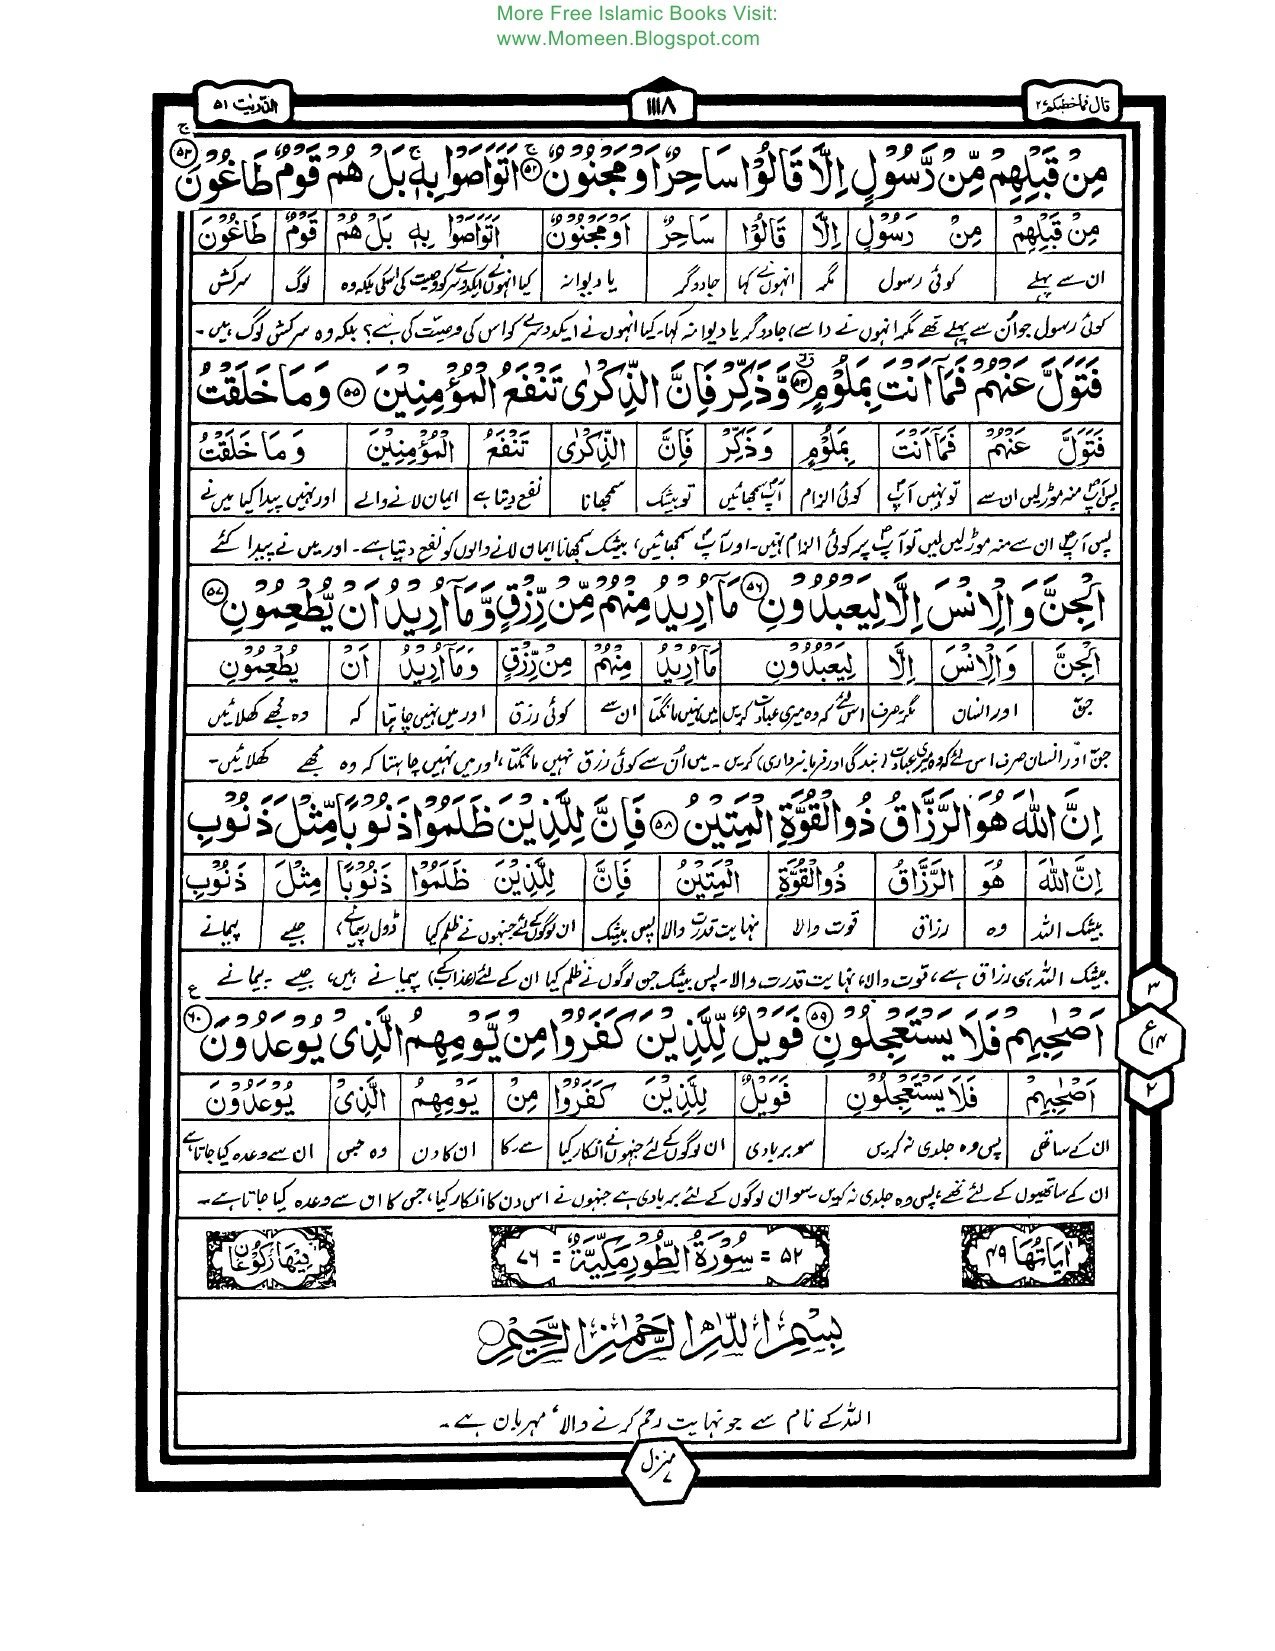 More Free Islamic Books Visit:
www.Momeen.Blogspot.com
قال فما خطبكم ۲۷ ۱۱۱۸ الذّٰریٰت ۵۱
مِنْ قَبْلِهِمْ مِّنْ رَّسُوْلٍ اِلَّا قَالُوْا سَاحِرٌ اَوْ مَجْنُوْنٌ ۵۲ اَتَوَاصَوْا بِهٖ بَلْ هُمْ قَوْمٌ طَاغُوْنَ ۵۳
مِنْ قَبْلِهِمْ مِنْ رَسُوْلٍ اِلَّا قَالُوْا سَاحِرٌ اَوْ مَجْنُوْنٌ اَتَوَاصَوْا بِهٖ بَلْ هُمْ قَوْمٌ طَاغُوْنَ
ان سے پہلے کوئی رسول مگر انہوں نے کہا جادوگر یا دیوانہ کیا انہوں نے ایکدوسرے کو وصیت کی اسکی بلکہ وہ لوگ سرکش
کوئی رسول جو اُن سے پہلے تھے مگر انہوں نے (اسے) جادوگر یا دیوانہ کہا۔ کیا انہوں نے ایکدوسرے کو اس کی وصیّت کی ہے؟ بلکہ وہ سرکش لوگ ہیں۔
فَتَوَلَّ عَنْهُمْ فَمَآ اَنْتَ بِمَلُوْمٍ ۵۴ وَّذَكِّرْ فَاِنَّ الذِّكْرٰى تَنْفَعُ الْمُؤْمِنِيْنَ ۵۵ وَمَا خَلَقْتُ
فَتَوَلَّ عَنْهُمْ فَمَآ اَنْتَ بِمَلُوْمٍ وَذَكِّرْ فَاِنَّ الذِّكْرٰى تَنْفَعُ الْمُؤْمِنِيْنَ وَمَا خَلَقْتُ
پس آپؐ منہ موڑ لیں ان سے تو نہیں آپؐ کوئی الزام آپؐ سمجھائیں تو بیشک سمجھانا نفع دیتا ہے ایمان لانے والے اور نہیں پیدا کیا میں نے
پس آپؐ ان سے منہ موڑ لیں تو آپؐ پر کوئی الزام نہیں۔ اور آپؐ سمجھائیں، بیشک سمجھانا ایمان لانے والوں کو نفع دیتا ہے۔ اور میں نے پیدا کئے
الْجِنَّ وَالْاِنْسَ اِلَّا لِيَعْبُدُوْنِ ۵۶ مَآ اُرِيْدُ مِنْهُمْ مِّنْ رِّزْقٍ وَّمَآ اُرِيْدُ اَنْ يُّطْعِمُوْنِ ۵۷
الْجِنَّ وَالْاِنْسَ اِلَّا لِيَعْبُدُوْنِ مَآ اُرِيْدُ مِنْهُمْ مِنْ رِّزْقٍ وَمَآ اُرِيْدُ اَنْ يُطْعِمُوْنِ
جنّ اور انسان مگر صرف اس لئے کہ وہ میری عبادت کریں میں نہیں مانگتا ان سے کوئی رزق اور میں نہیں چاہتا کہ وہ مجھے کھلائیں
جنّ اور انسان صرف اس لئے کہ وہ میری عبادت (بندگی اور فرمانبرداری) کریں۔ میں اُن سے کوئی رزق نہیں مانگتا، اور میں نہیں چاہتا کہ وہ مجھے کھلائیں۔
اِنَّ اللّٰهَ هُوَ الرَّزَّاقُ ذُو الْقُوَّةِ الْمَتِيْنُ ۵۸ فَاِنَّ لِلَّذِيْنَ ظَلَمُوْا ذَنُوْبًا مِّثْلَ ذَنُوْبِ
اِنَّ اللّٰهَ هُوَ الرَّزَّاقُ ذُو الْقُوَّةِ الْمَتِيْنُ فَاِنَّ لِلَّذِيْنَ ظَلَمُوْا ذَنُوْبًا مِثْلَ ذَنُوْبِ
بیشک اللہ وہ رزاق قوت والا نہایت قدرت والا پس بیشک ان لوگوں کے لئے جنہوں نے ظلم کیا ڈول (پیمانے) جیسے پیمانے
بیشک اللہ ہی رزاق ہے، قوت والا، نہایت قدرت والا۔ پس بیشک جن لوگوں نے ظلم کیا ان کے لئے (عذاب کے) پیمانے ہیں، جیسے پیمانے
اَصْحٰبِهِمْ فَلَا يَسْتَعْجِلُوْنِ ۵۹ فَوَيْلٌ لِّلَّذِيْنَ كَفَرُوْا مِنْ يَّوْمِهِمُ الَّذِيْ يُوْعَدُوْنَ ۶۰ ع
۳ ع ۱۴ ۲
اَصْحٰبِهِمْ فَلَا يَسْتَعْجِلُوْنِ فَوَيْلٌ لِلَّذِيْنَ كَفَرُوْا مِنْ يَوْمِهِمُ الَّذِيْ يُوْعَدُوْنَ
ان کے ساتھی پس وہ جلدی نہ کریں سو بربادی ان لوگوں کے لئے جنہوں نے انکار کیا سے۔ کا ان کا دن وہ جس ان سے وعدہ کیا جاتا ہے
ان کے ساتھیوں کے لئے تھے، پس وہ جلدی نہ کریں۔ سو ان لوگوں کے لئے بربادی ہے جنہوں نے اس دن کا انکار کیا، جس کا ان سے وعدہ کیا جاتا ہے۔
اٰيَاتُهَا ۴۹ ۵۲ = سُوْرَةُ الطُّوْرِ مَكِّيَّةٌ = ۷۶ فِيْهَا رُكُوْعَانِ
بِسْمِ اللّٰهِ الرَّحْمٰنِ الرَّحِيْمِ
اللہ کے نام سے جو نہایت رحم کرنے والا، مہربان ہے۔
منزل ۷